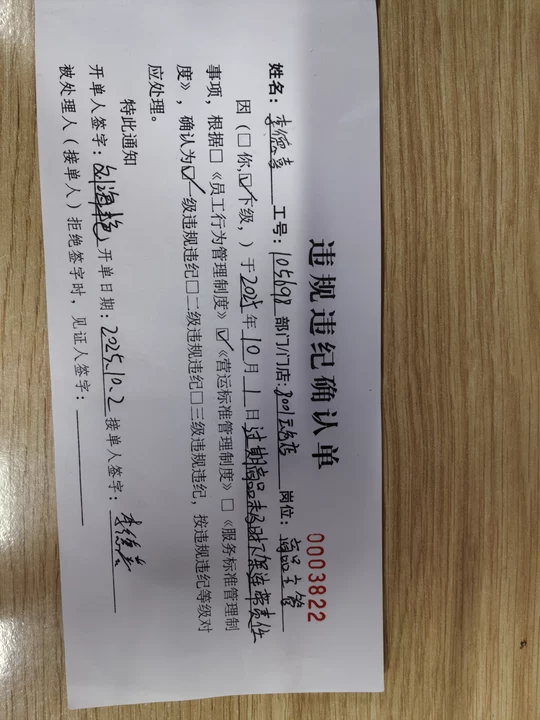 违规违纪确认单
0003822
姓名：李德喜 工号：105698 部门/门店：8001 店 岗位：商品主管
因（□你，☑下级，）于2025年10月1日过期商品未及时下架连带责任
事项，根据□《员工行为管理制度》☑《营运标准管理制度》□《服务标准管理制
度》，确认为☑一级违规违纪□二级违规违纪□三级违规违纪，按违规违纪等级对
应处理。
特此通知
开单人签字： 海艳 开单日期：2025.10.2 接单人签字：李德喜
被处理人（接单人）拒绝签字时，见证人签字：